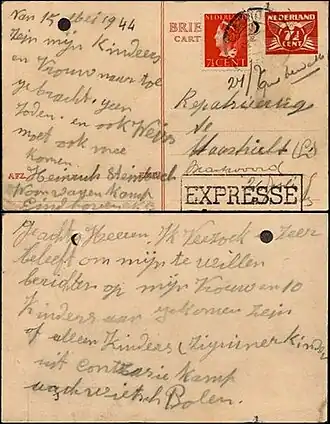 Van 15 Mei 1944
Zijn mijn Kinders
en Vrouw naar toe
gebracht, geen
Joden. en ook Weis
moet ook mee
komen.
AFZ. Heinrich Steinbach
Woonwagen Kamp
Eindhoven
BRIEF
CARTE
NEDERLAND
7½ CENT
NEDERLAND
7½
CENT
Repatrieering
te
Maastricht (L)
EXPRESSE
Geacht Heeren. Ik Verzock Zeer
beleeft om mijn te willen
berichten op mijn Vrouw en 10
Kinders aan gekomen zijn
of alleen Kinders (Zigeuner Kinder
uit Kamp
Polen.